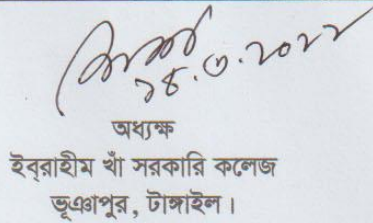 ১৪.৩.২০২২
অধ্যক্ষ
ইবরাহীম খাঁ সরকারি কলেজ
ভূঞাপুর, টাঙ্গাইল।